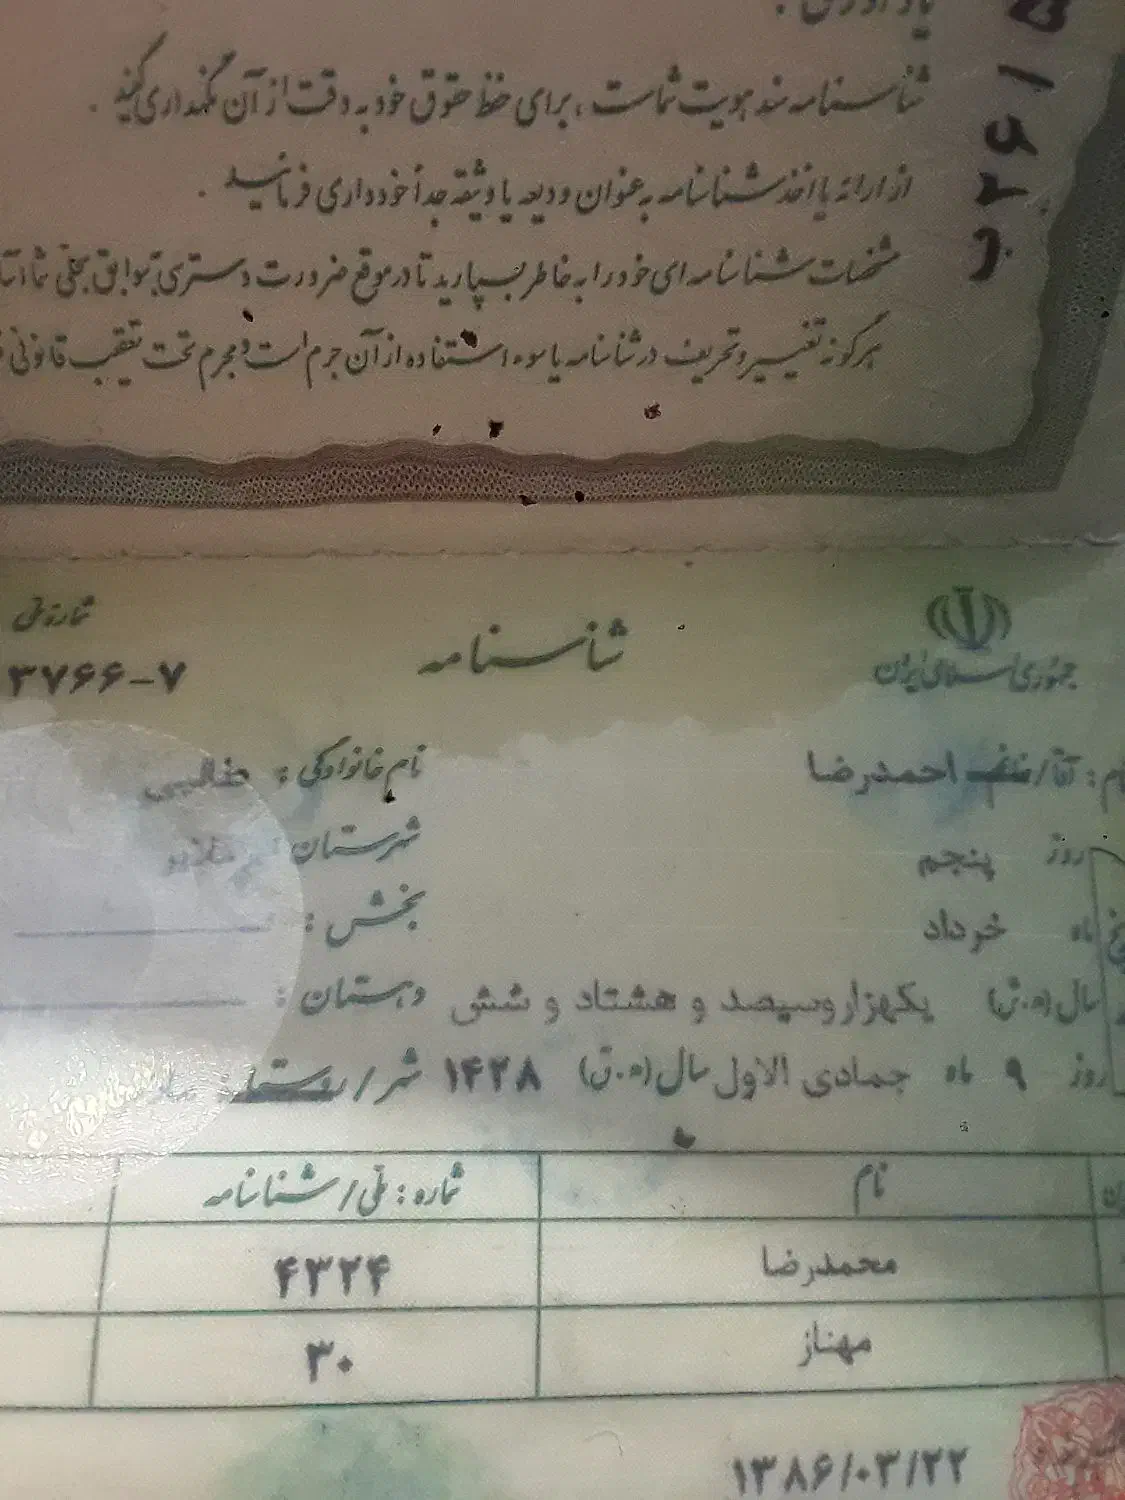 یادآوری :
شناسنامه سند هویت شماست ، برای حفظ حقوق خود به دقت از آن نگهداری کنید .
از ارائه یا اخذ شناسنامه به عنوان ودیعه یا وثیقه جداً خودداری فرمائید .
مشخصات شناسنامه ای خود را به خاطر بسپارید تا در موقع ضرورت دسترسی به سوابق سجلی شما
هرگونه تغییر و تحریف در شناسنامه یا سوء استفاده از آن جرم است و مجرم تحت تعقیب قانونی
جمهوری اسلامی ایران
شناسنامه
شماره ملی
۳۷۶۶-۷
نام : آقا/خانم احمدرضا
نام خانوادگی : طالبی
روز پنجم
شهرستان
ماه خرداد
بخش :
سال (ه.ش) یکهزار و سیصد و هشتاد و شش
دهستان :
روز ۹ ماه جمادی الاول سال (ه.ق) ۱۴۲۸
شهر/روستا
نام
شماره : ملی/شناسنامه
محمدرضا
۴۳۲۴
مهناز
۳۰
۱۳۸۶/۰۳/۲۲